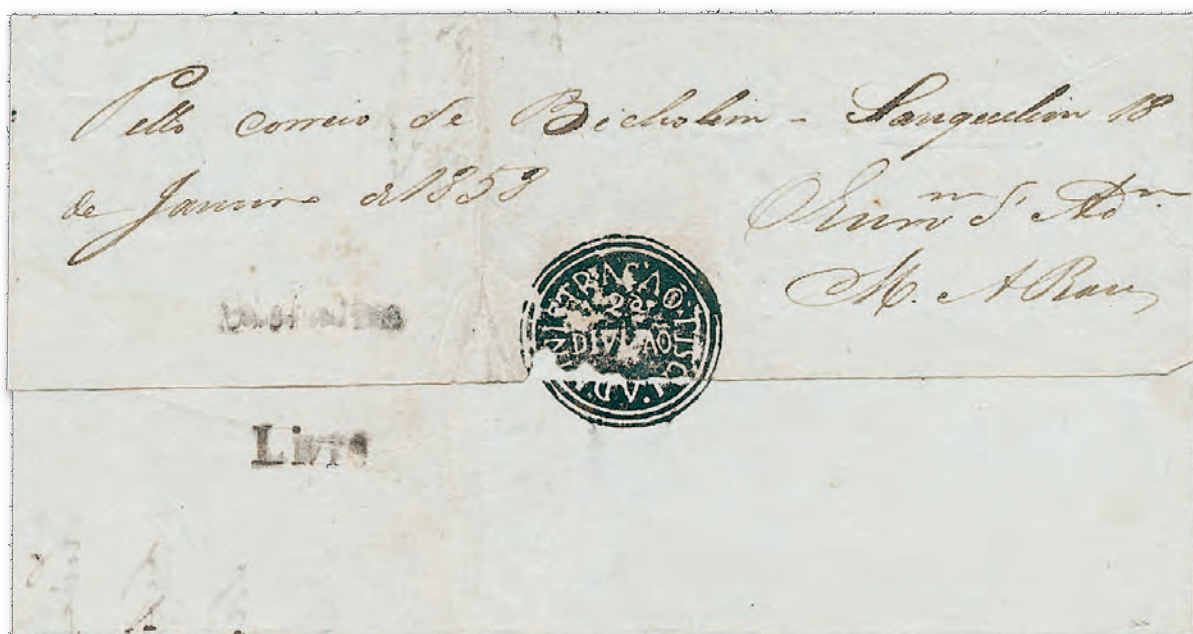 Pello correio de Bicholim - Sanquelim 18
de Janeiro d 1853
M. A Rau
ADMINISTRAÇAÕ FISCAL
2ª
DIVIZAÕ
Livre